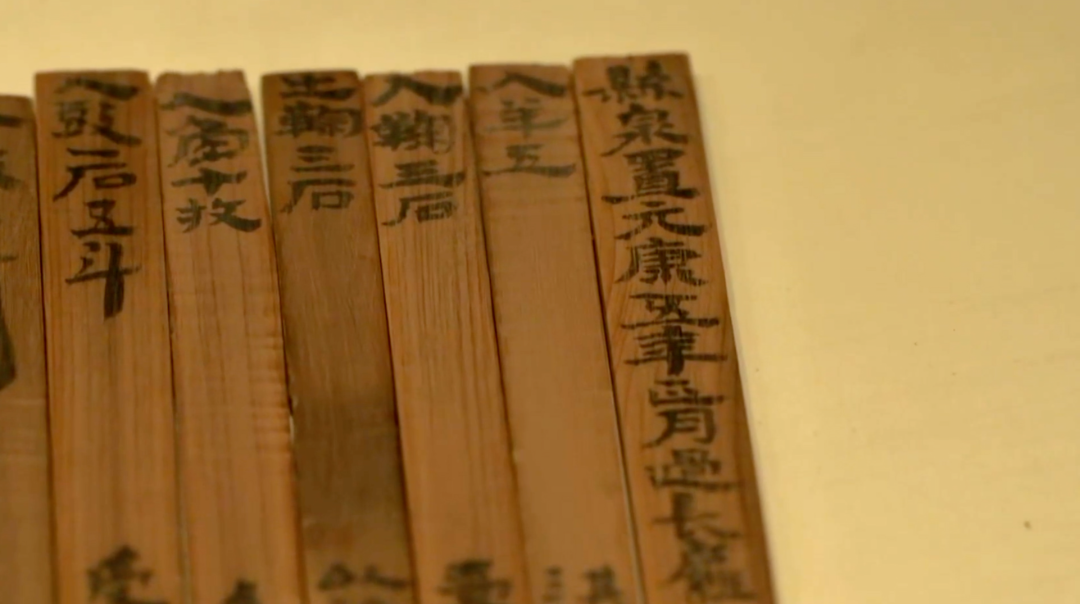 縣泉置元康五年正月過長羅
入羊五
入鞠三石
出鞠三石
入魚十枚
入豉一石五斗